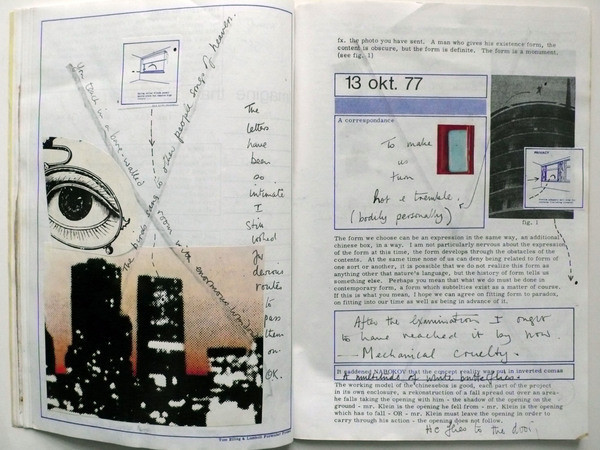 The
letters
have
been
so
intimate
I
devious
routes
to
pass
them
on.
OK.
fx. the photo you have sent. A man who gives his existence form, the
content is obscure, but the form is definite. The form is a monument.
(see fig. 1)
13 okt. 77
A correspondance
To make
us
turn
hot & trendale.
(bodily personally)
PRIVACY
fig. 1
The form we choose can be an expression in the same way, an additional
chinese box, in a way. I am not particularly nervous about the expression
of the form at this time, the form develops through the obstacles of the
contents. At the same time none of us can deny being related to form of
one sort or another, it is possible that we do not realize this form as
anything other that nature's language, but the history of form tells us
something else. Perhaps you mean that what we do must be done in
contemporary form, a form which subtelties exist as a matter of course.
If this is what you mean, I hope we can agree on fitting form to paradox,
on fitting into our time as well as being in advance of it.
After the Examination I ought
to have reached it by now.
Mechanical Cruelty.
It saddened NABOKOV that the concept reality was put in inverted comas
A multitude of white butterflies.
The working model of the chinesebox is good, each part of the project
in its own enclosure, a rekonstruction of a fall spread out over an area-
he falls taking the opening with him - the shadow of the opening on the
ground - mr. Klein is the opening he fell from - mr. Klein is the opening
which has to fall - OR - mr. Klein must leave the opening in order to
carry through his action - the opening does not follow.
He flies to the door